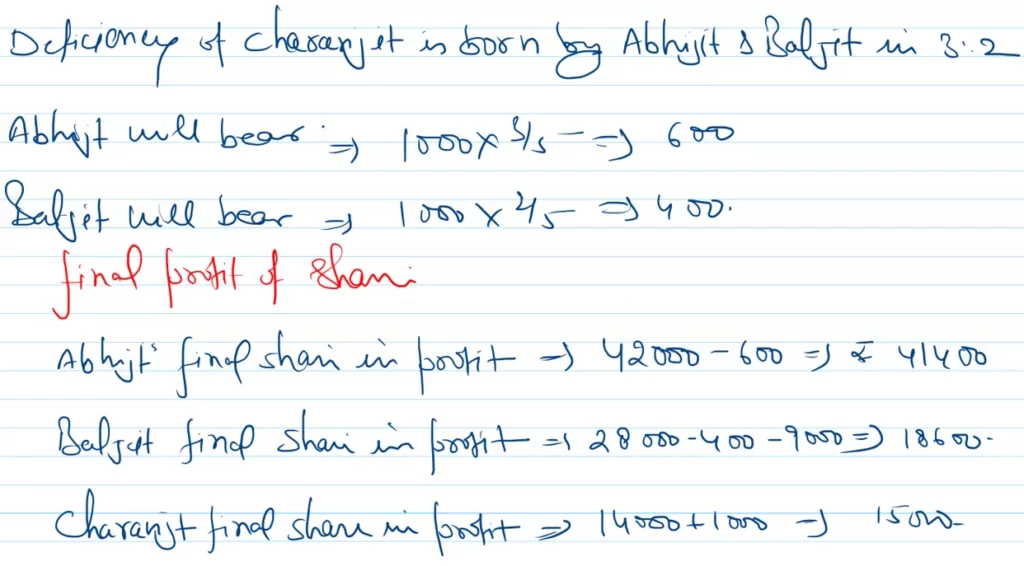 Deficiency of Charanjet is born by Abhijit & Baljit in 3:2
Abhijt will bear ⇒ 1000 × 3/5 ⇒ 600
Baljet will bear ⇒ 1000 × 2/5 ⇒ 400.
final profit of Shari
Abhijt's final shari in profit ⇒ 42000 - 600 ⇒ ₹ 41400
Baljit final shari in profit ⇒ 28000 - 400 - 9000 ⇒ 18600.
Charanjt final share in profit ⇒ 14000 + 1000 → 15000